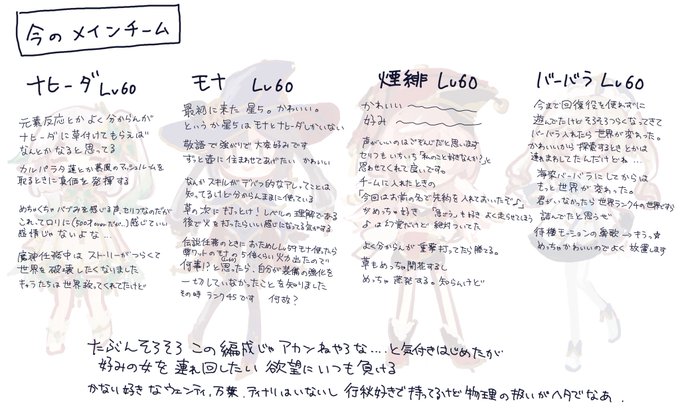 今のメインチーム
ナヒーダ Lv60
元素反応とかよく分からんが
ナヒーダに草付けてもらえば
なんとかなると思ってる
カルパラタ蓮とか暮夜のマッシュルームを
取るときに真価を発揮する
めちゃくちゃバブみを感じる声、セリフなのだが
これってロリに(500才over だが…)感じていい
感情じゃないよな…
魔神任務中はストーリーがつらくて
世界を破壊したくなりました
キャラたちは世界救ってくれてたけど
モナ Lv60
最初に来た星5。かわいい。
というか星5はモナとナヒーダしかいない
敬語で強がりで大変好みです
ずっと壺に住まわせてあげたい かわいい
なんかスキルがデバフ的なアレってことは
知ってるけど分からんままに使っている
草の次に打っとけ!レベルの理解である
後で火を打ったらいい感じになる気がする
伝説任務のときにおためしLv.54モナ使ったら
塵ワットのモナの5倍くらい火力出たので
何事!?と思ったら、自分が装備の強化を
一切していなかったことを知りました
その時 ランク45です 何故?
煙緋 Lv60
かわいい
好み
声がいいのはぞんじだと思います
セリフもいちいち「私のこと好きなんか?」と
思わせてくれて良いです。
チームに入れたときの
「今回はお前の名で契約を入れておいたぞ♪」
がめっちゃ好き
よく分からんが重撃打ってたら勝てる。
草もめっちゃ開花するし
めっちゃ蒸発する。知らんけど
バーバラ Lv60
今まで回復役を使わずに
遊んでたけどそろそろつらくなってきて
バーバラ入れたら世界が変わった。
かわいいから探索するときとかは
連れまわしてたんだけどね…
海染バーバラにしてからは
もっと世界が変わった。
君がいなかったら世界ランク4の世界ですら
詰んでたと思うぜ
待機モーションの鼻歌→もうっ☆
めっちゃかわいいのでよく放置します
たぶんそろそろこの編成じゃアカンねやろな….と気付きはじめたが
好みの女を連れ回したい欲望にいつも負ける
かなり好きなウェンティ、万葉、ティナリはいないし 行秋好きで持ってるけど物理の扱いがヘタでなあ.